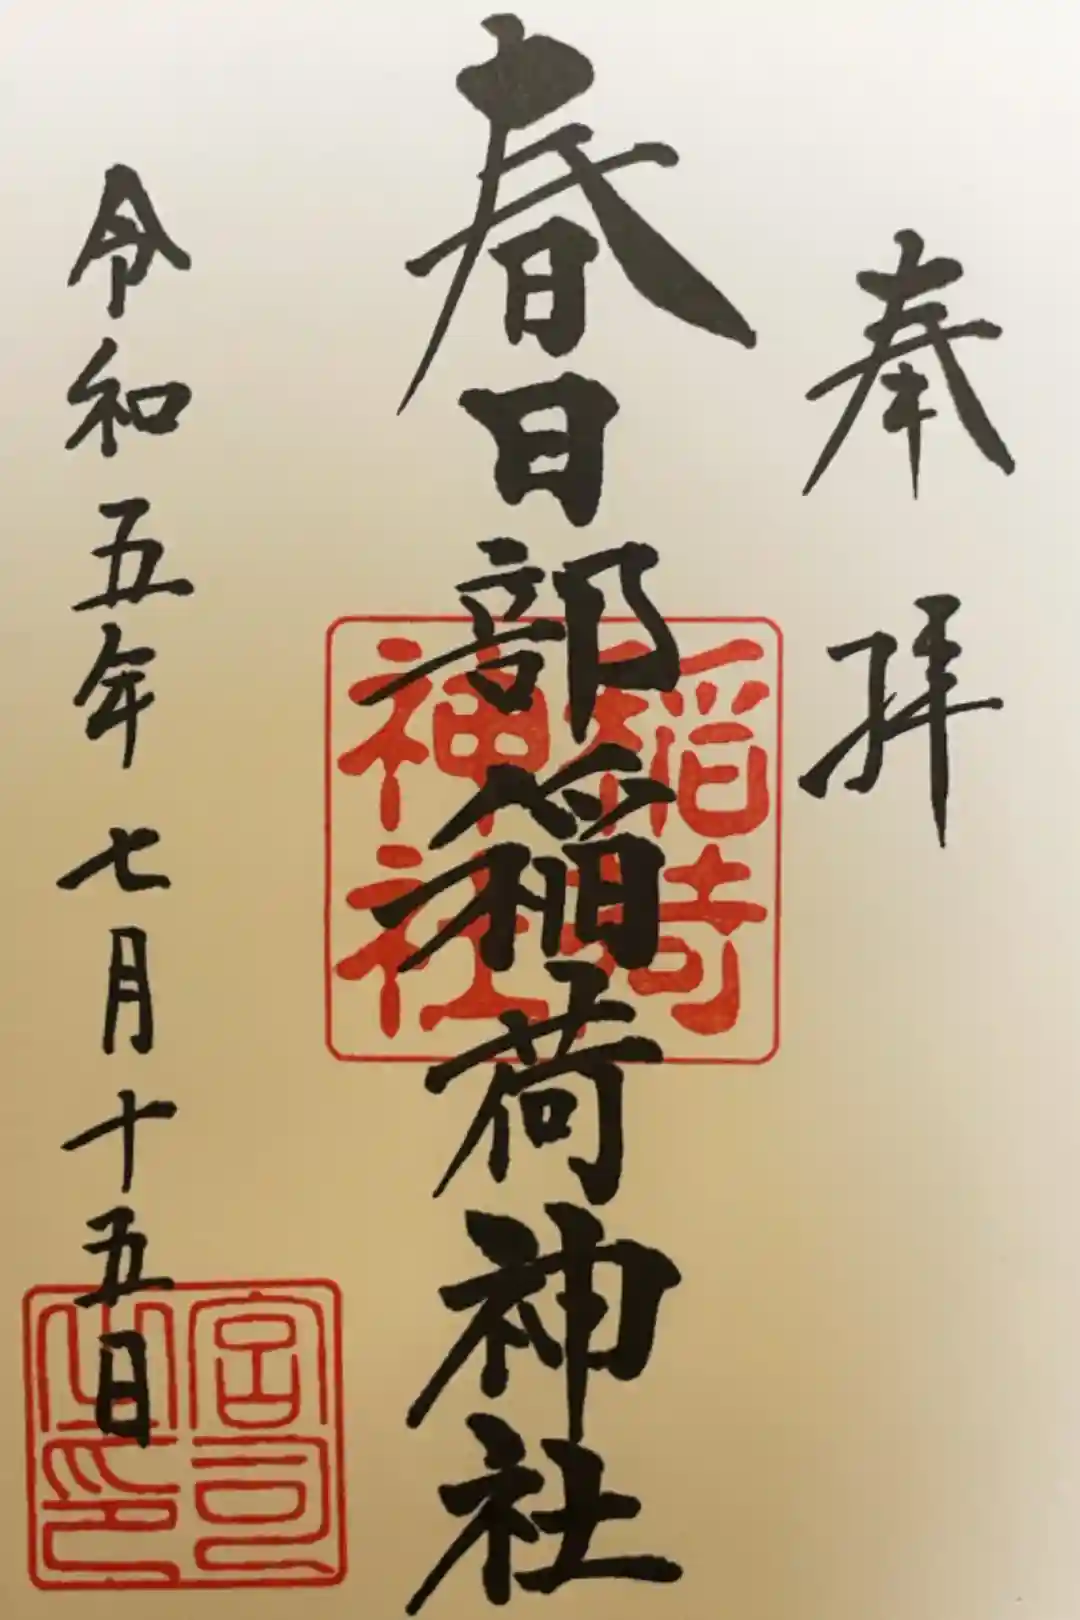 奉拝
春日部稲荷神社
令和五年七月十五日
稲荷
神社
宮司
之印